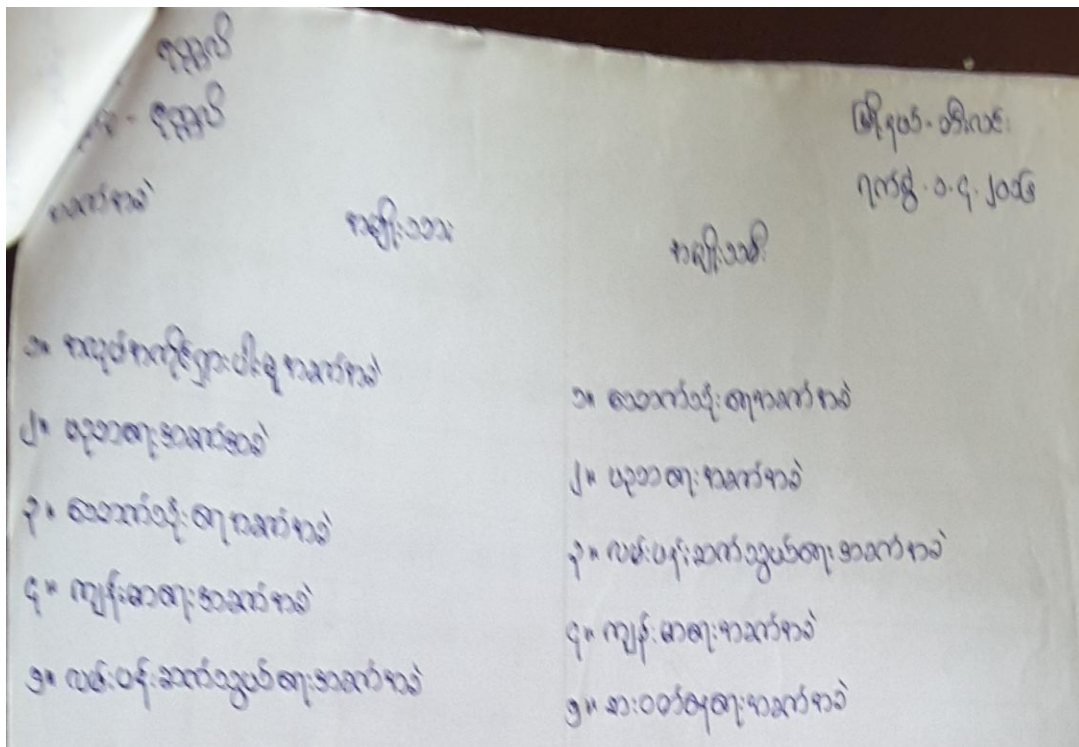 ရုတ္တုလိ
- ရုတ္တုလိ
မြို့ရပ်-ထီးလင်း
ရက်စွဲ.၁.၄.၂၀၁၆
အခက်အခဲ
အမျိုးသား
အမျိုးသမီး
၁။ အလုပ်အကိုင်ရှားပါးမှုအခက်အခဲ
၂။ ပညာရေးအခက်အခဲ
၃။ သောက်သုံးရေအခက်အခဲ
၄။ ကျန်းမာရေးအခက်အခဲ
၅။ လမ်းပန်းဆက်သွယ်ရေးအခက်အခဲ
၁။ သောက်သုံးရေအခက်အခဲ
၂။ ပညာရေးအခက်အခဲ
၃။ လမ်းပန်းဆက်သွယ်ရေးအခက်အခဲ
၄။ ကျန်းမာရေးအခက်အခဲ
၅။ စားဝတ်နေရေးအခက်အခဲ